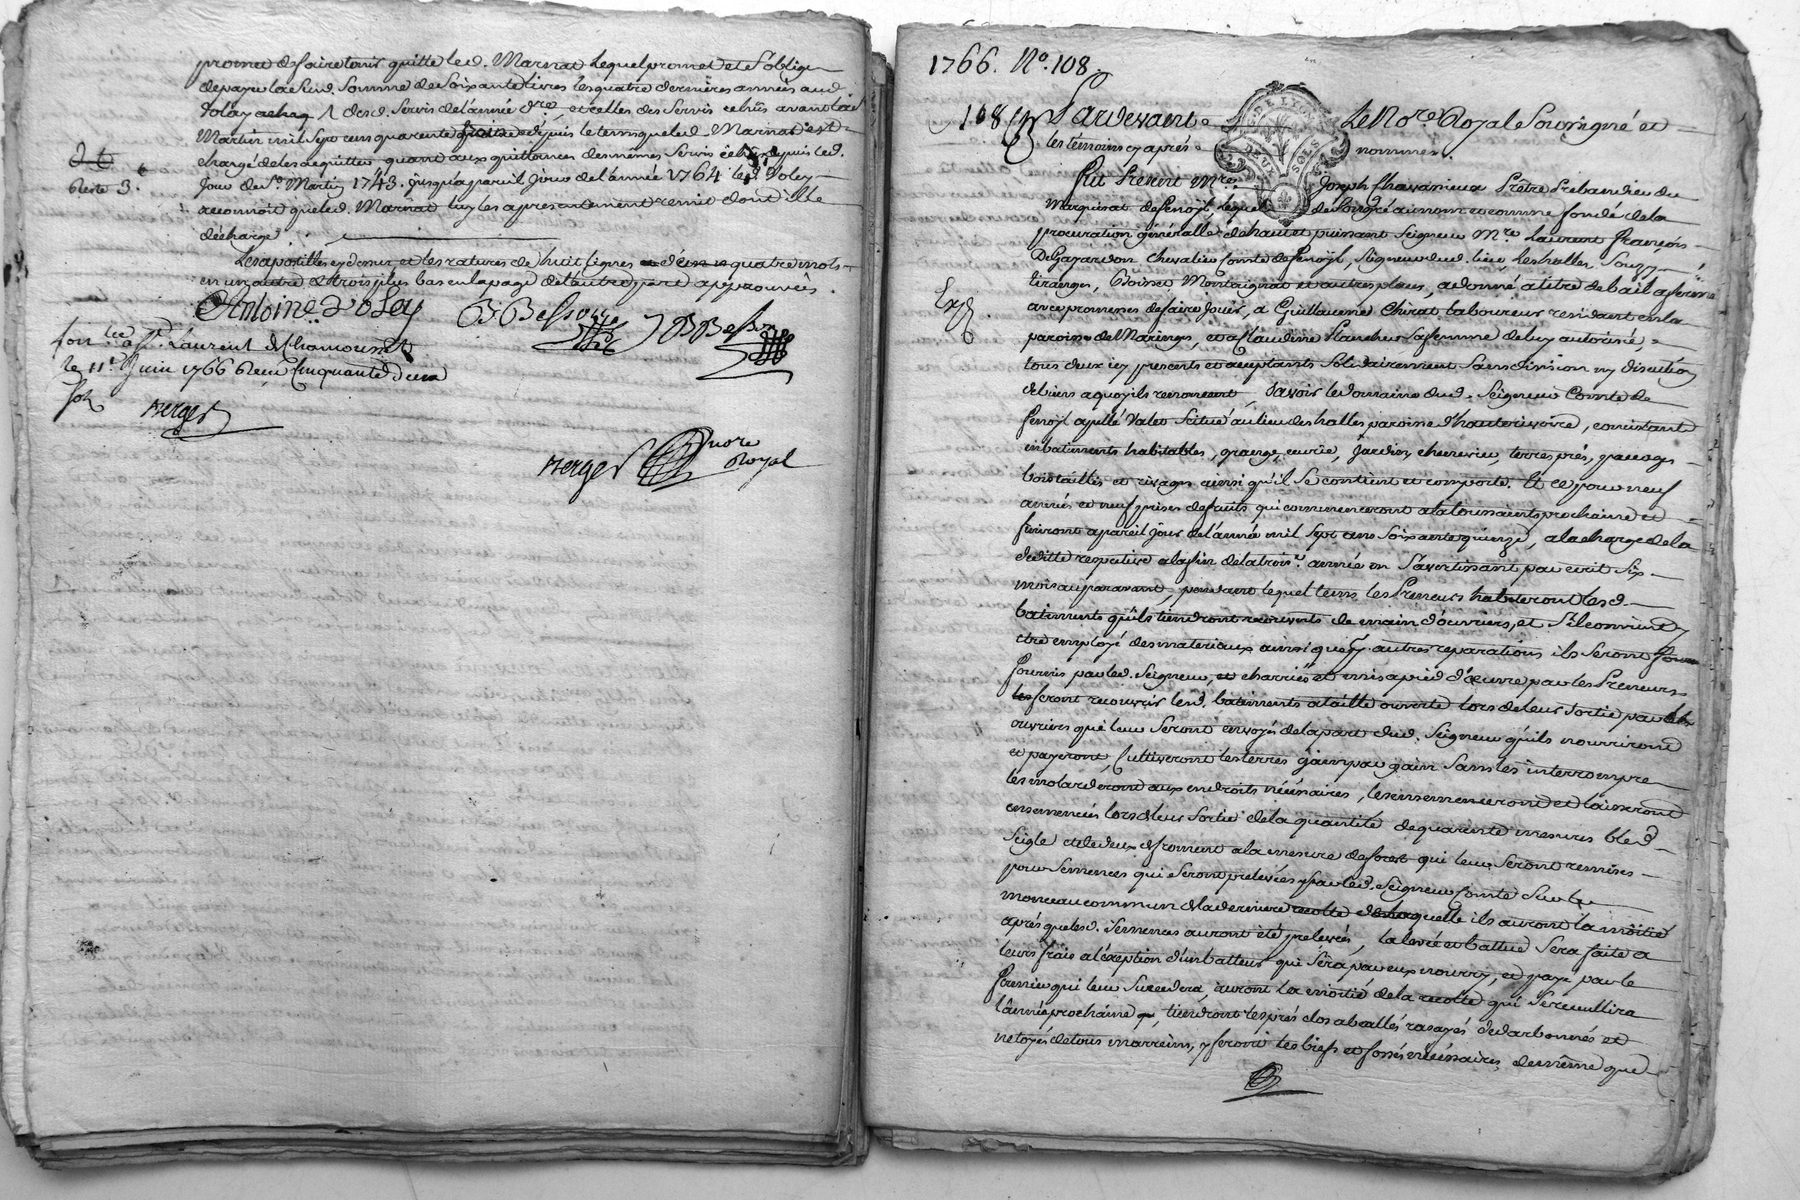 promet de faire tenir quitte led. Marnat lequel promet et s'oblige
de payer lad. somme de soixante livres les quatre dernières années aud
Voley desd. servis de l'année et celles des servis echûs avant la S.
Martin mil sept cens quarante depuis le tems que led. Marnat est
chargé de les acquitter quant aux quittances desmêmes servis echus depuis led.
Reste 3.
jour de St. Martin 1743. jusqu'a pareil jour de l'année 1764 led. Voley
reconnoit que led. Marnat luy les a presentement remis dont il le
décharge
Les apostilles cy dessus et les ratures de huit lignes quatre mots
en un autre et trois plus bas en la page de l'autre part approuvées.
Antoine Voley
Laurent de Chamousset
le 11e. Juin 1766 Reçu Cinquante deux
sols
Berger
Berger nore
Royal
1766. No. 108.
108
Pardevant Le Nore. Royal soussigné et
les témoins cy après nommés.
G. DE LYON
DEUX SOLS
Fut Present Mre. Joseph Chavanieux Prêtre Prebandier du
Marquisat de Fenoÿl, lequel de son gré au nom et comme fondé de la
procuration généralle de haut et puissant Seigneur Mre. Laurent François
De Gayardon Chevalier Comte de Fenoÿl, Seigneur dud. lieu, les halles, Souzy
Montagnat et autres places, a donné a titre de bail a ferme
Exp.
avec promesses de faire jouir, a Guillaume Chirat laboureur residant en la
paroisse de Maringes, et a Claudine sa femme de luy autorisée,
tous deux icy presents et acceptants solidairement sans division ny discution
de biens a quoy ils renoncent, savoir le domaine dud. Seigneur Comte de
Fenoÿl apellé Valet scitué au lieu des halles paroisse d'hauterivoire, consistant
en batiments habitables, grange, ecurie, jardin, cheneviere, terres, prés, pacages
bois taillis et rivages ainsi qu'il se contient et comporte. Et ce pour neuf
années et neuf prises de fruits qui commenceront a la toussaints prochaine et
finiront a pareil jour de l'année mil sept cens soixante quinze, a la charge de la
deditte respective a la fin de la trois.e année en s'avertissant par ecrit six
mois auparavant, pendant lequel tems les Preneurs habiteront lesd.
batiments qu'ils tiendront recouverts de main d'ouvriers, et s'il convient
être employé des materiaux ainsi que pr. autres reparations ils seront
fournis par led. Seigneur, et charriés et mis a pied d'œuvre par les Preneurs
feront recouvrir lesd. batiments a taille ouverte lors de leur sortie par les
ouvriers qui leur seront envoyés de la part dud. Seigneur qu'ils nourriront
et payeront, Cultiveront les terres gain par gain sans les interrompre
les molarderont aux endroits nécéssaires, les ensemenceront et laisseront
ensemencées lors de leur sortie de la quantité de quarante mesures bled
seigle et de deux de froment a la mesure de forest qui leur seront remises
pour semences qui seront prelevées par led. Seigneur Comte sur le
monceau commun de la derniere recolte de laquelle ils auront la moitié
après que lesd. semences auront été prelevées, la levée et battue sera faite a
leurs frais a l'éxeption d'un batteur qui sera par eux nourry, et payé par le
Fermier qui leur succedera, auront la moitié de la recolte qui se recuillira
l'année prochaine, tiendront les prés clos aballés rasayés dedarbonnés et
netoyés de tous marreins, y feront les biefs et fossés nécéssaires, de même que